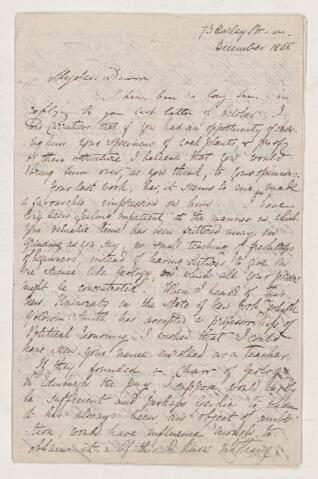 73 Harley Str. W.
December 1868
My dear Dawson
I have been so long in
reply to your last letter of October. I
did that if you had an opportunity of show-
ing your specimens of coal plants, & proofs
of their structure, I believe that you would
bring him over, as you think, to your opinion.
Your last work, has, it seems to me, made
a favourable impression on him. I have
long been feeling impatient at the manner in which
your valuable time has been frittered away, in
grinding, as you say, in small teaching of
of beginners, instead of having lectures to give on
one science like geology, on which all your powers
might be concentrated. When I heard of this
new University in the State of New York to which
Goldwin Smith has accepted a professorship of
Political Economy, I wished that I could
have seen your name as a teacher.
If they founded a Chair of geology
in Edinburgh the pay I suppose would hardly
be sufficient and perhaps Geikie to whom
it has always been an object of ambi-
tion, would have influence enough to
obtain it. Of this I know nothing